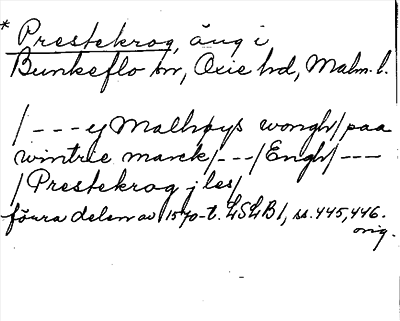 * Prestekrog, äng i
Bunkeflo sn, Oxie hd, Malm. l.
/--- ey Malhøys wongh/ paa
wintrie marck/---/Engh/---
/Prestekrog j les/
förra delen av 1570-t. LSLB 1, ss. 445, 446.
orig.